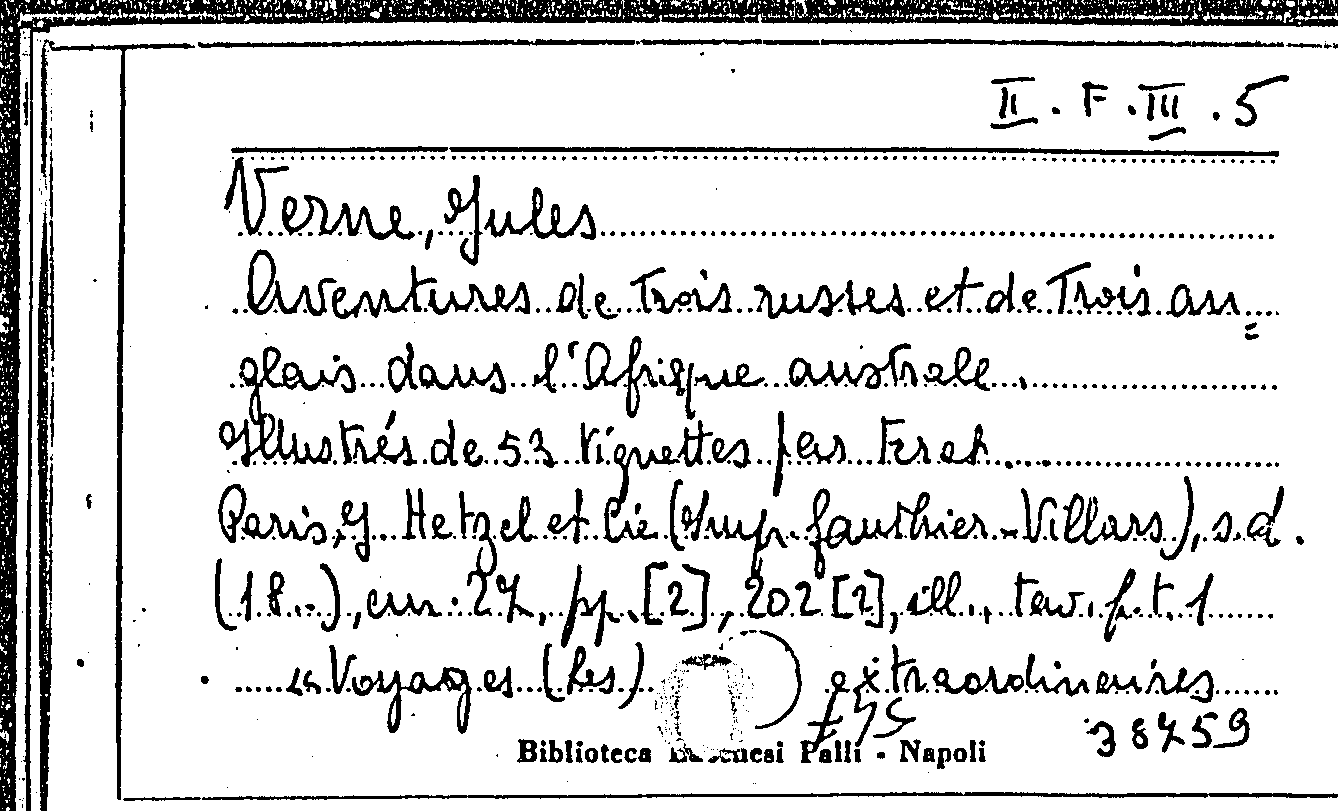 II. F. III. 5
Verne, Jules
Aventures de Trois russes et de Trois an=
glais dans l'Afrique australe.
Illustrés de 53 vignettes par Ferat.
Paris, J. Hetzel et Cie (Imp. Gauthier-Villars), s.d.
(18..), cm. 27, pp. [2], 202 [2], ill., tav. f.t. 1
Voyages (Les) extraordinaires
38759
Biblioteca Palli - Napoli